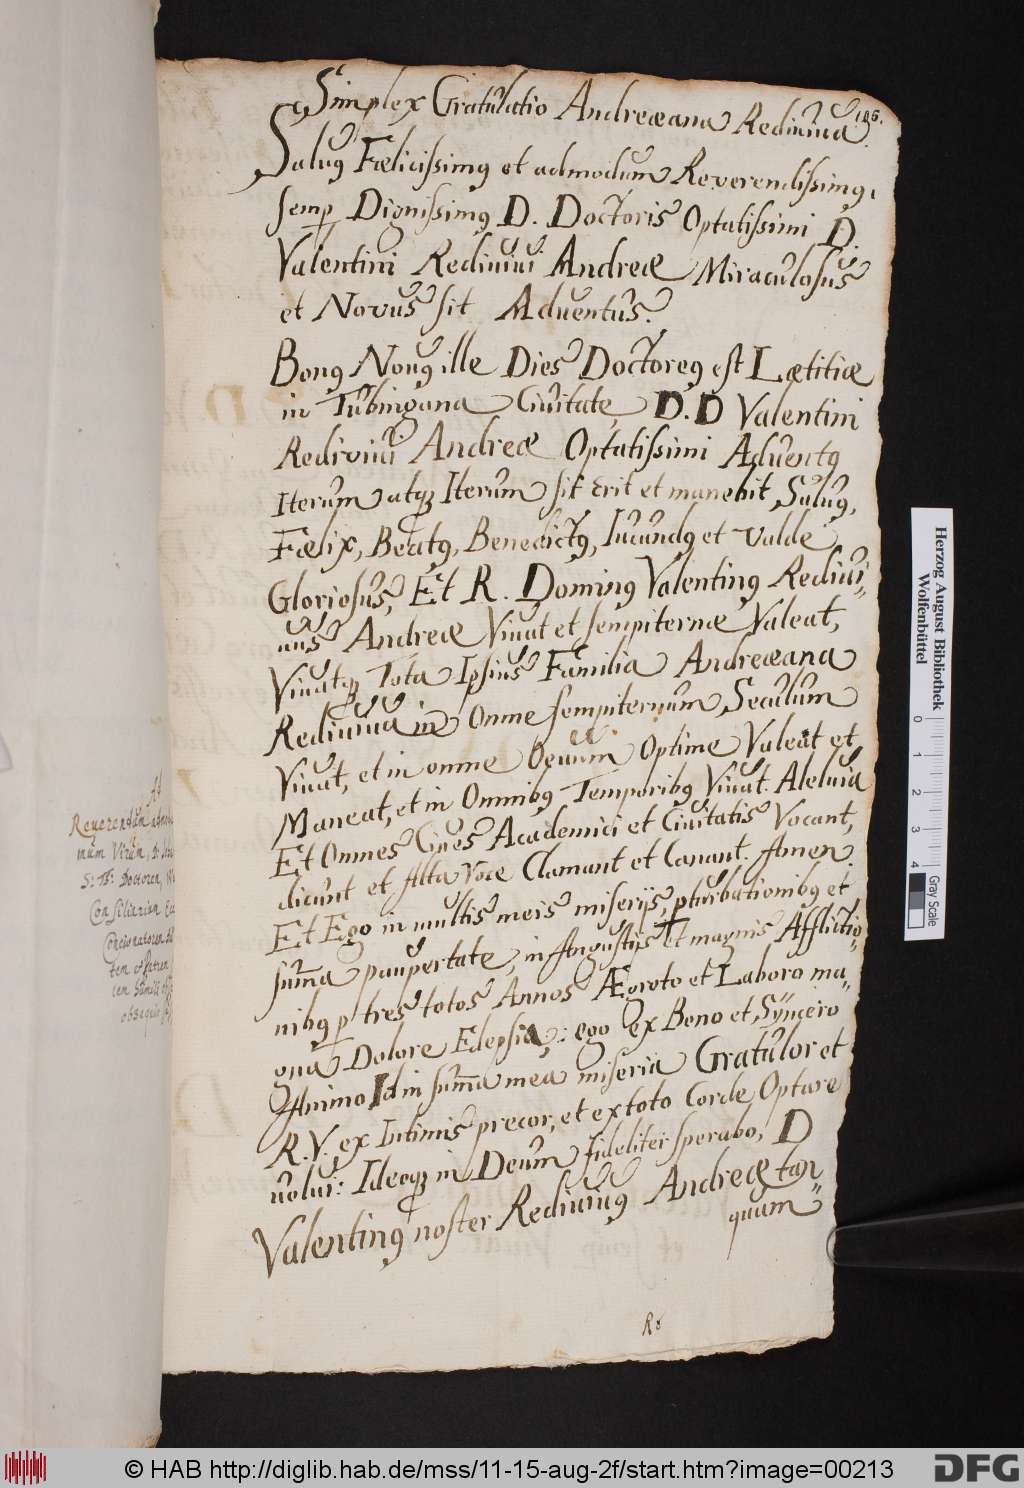 Simplex Gratulatio Andreæana Rediuiua. 106.
Salus Fœlicissimus et admodum Reverendissimus,
semp Dignissimus D. Doctoris Optatissimi D.
Valentini Rediuiui Andreæ Miraculosus
et Novus sit Aduentus.
Bonus Nouus ille Dies Doctoreus est Lætitiæ
in Tubingana Ciuitate, D. D Valentini
Redivivi Andreæ Optatissimi Aduentus
Iterum atq Iterum sit erit et manebit, Saluus,
Fœlix, Beatus, Benedictus, Iucundus et valde
Gloriosus, Et R. Dominus Valentinus Rediui„
uus Andreæ Viuat et sempiternæ Valeat,
Viuatq Tota Ipsius Familia Andreæana
Rediuiua in Omne sempiternum Seculum
Viuat, et in omne Oeuum Optime Valeat et
Maneat, et in Omnibus Temporibus Viuat. Aleluia
Et Omnes Ciues Academici et Ciuitatis Vocant,
dicunt et Alta Voce Clamant et Canant. Amen.
Et Ego in multis meis miserijs, pturbationibus et
sum̄a paupertate, in Angustijs et magnis Afflictio„
nibus p tres totos Annos Ægroto et Laboro ma„
gna Dolore Edepsia,: ego ex Bono et Syncero
Animo Id in sum̄a mea miseria Gratulor et
R. V. ex Intimis precor, et ex toto Corde Optare
uolui: Ideoq in Deum fideliter sperabo, D
Valentinus noster Rediuiuus Andreæ tan
quam„
Ad
Reuerendum
mum Virum, D.
S: Th: Doctorem,
Consiliarium
Concionatorem
Herzog August Bibliothek
Wolfenbüttel
0 1 2 3 4
Gray Scale
© HAB http://diglib.hab.de/mss/11-15-aug-2f/start.htm?image=00213
DFG